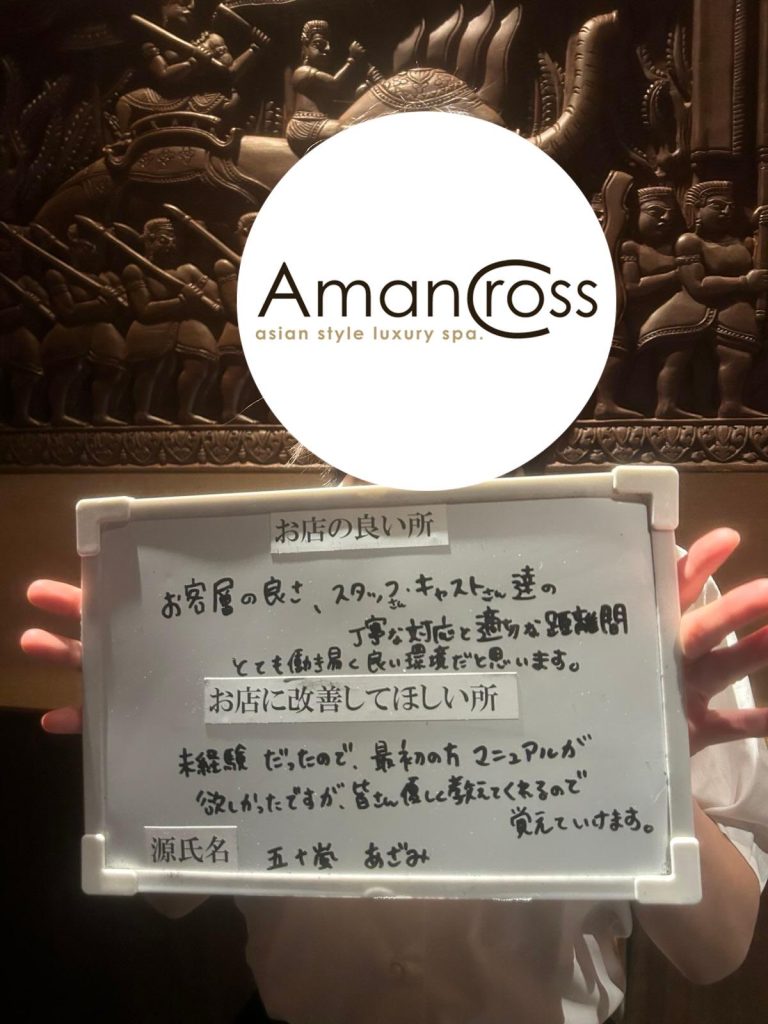 AmanCross
asian style luxury spa.
お店の良い所
お客層の良さ、スタッフさん・キャストさん達の
丁寧な対応と適切な距離間
とても働き易く良い環境だと思います。
お店に改善してほしい所
未経験だったので、最初の方マニュアルが
欲しかったですが、皆さん優しく教えてくれるので
覚えていけます。
源氏名 五十嵐 あざみ